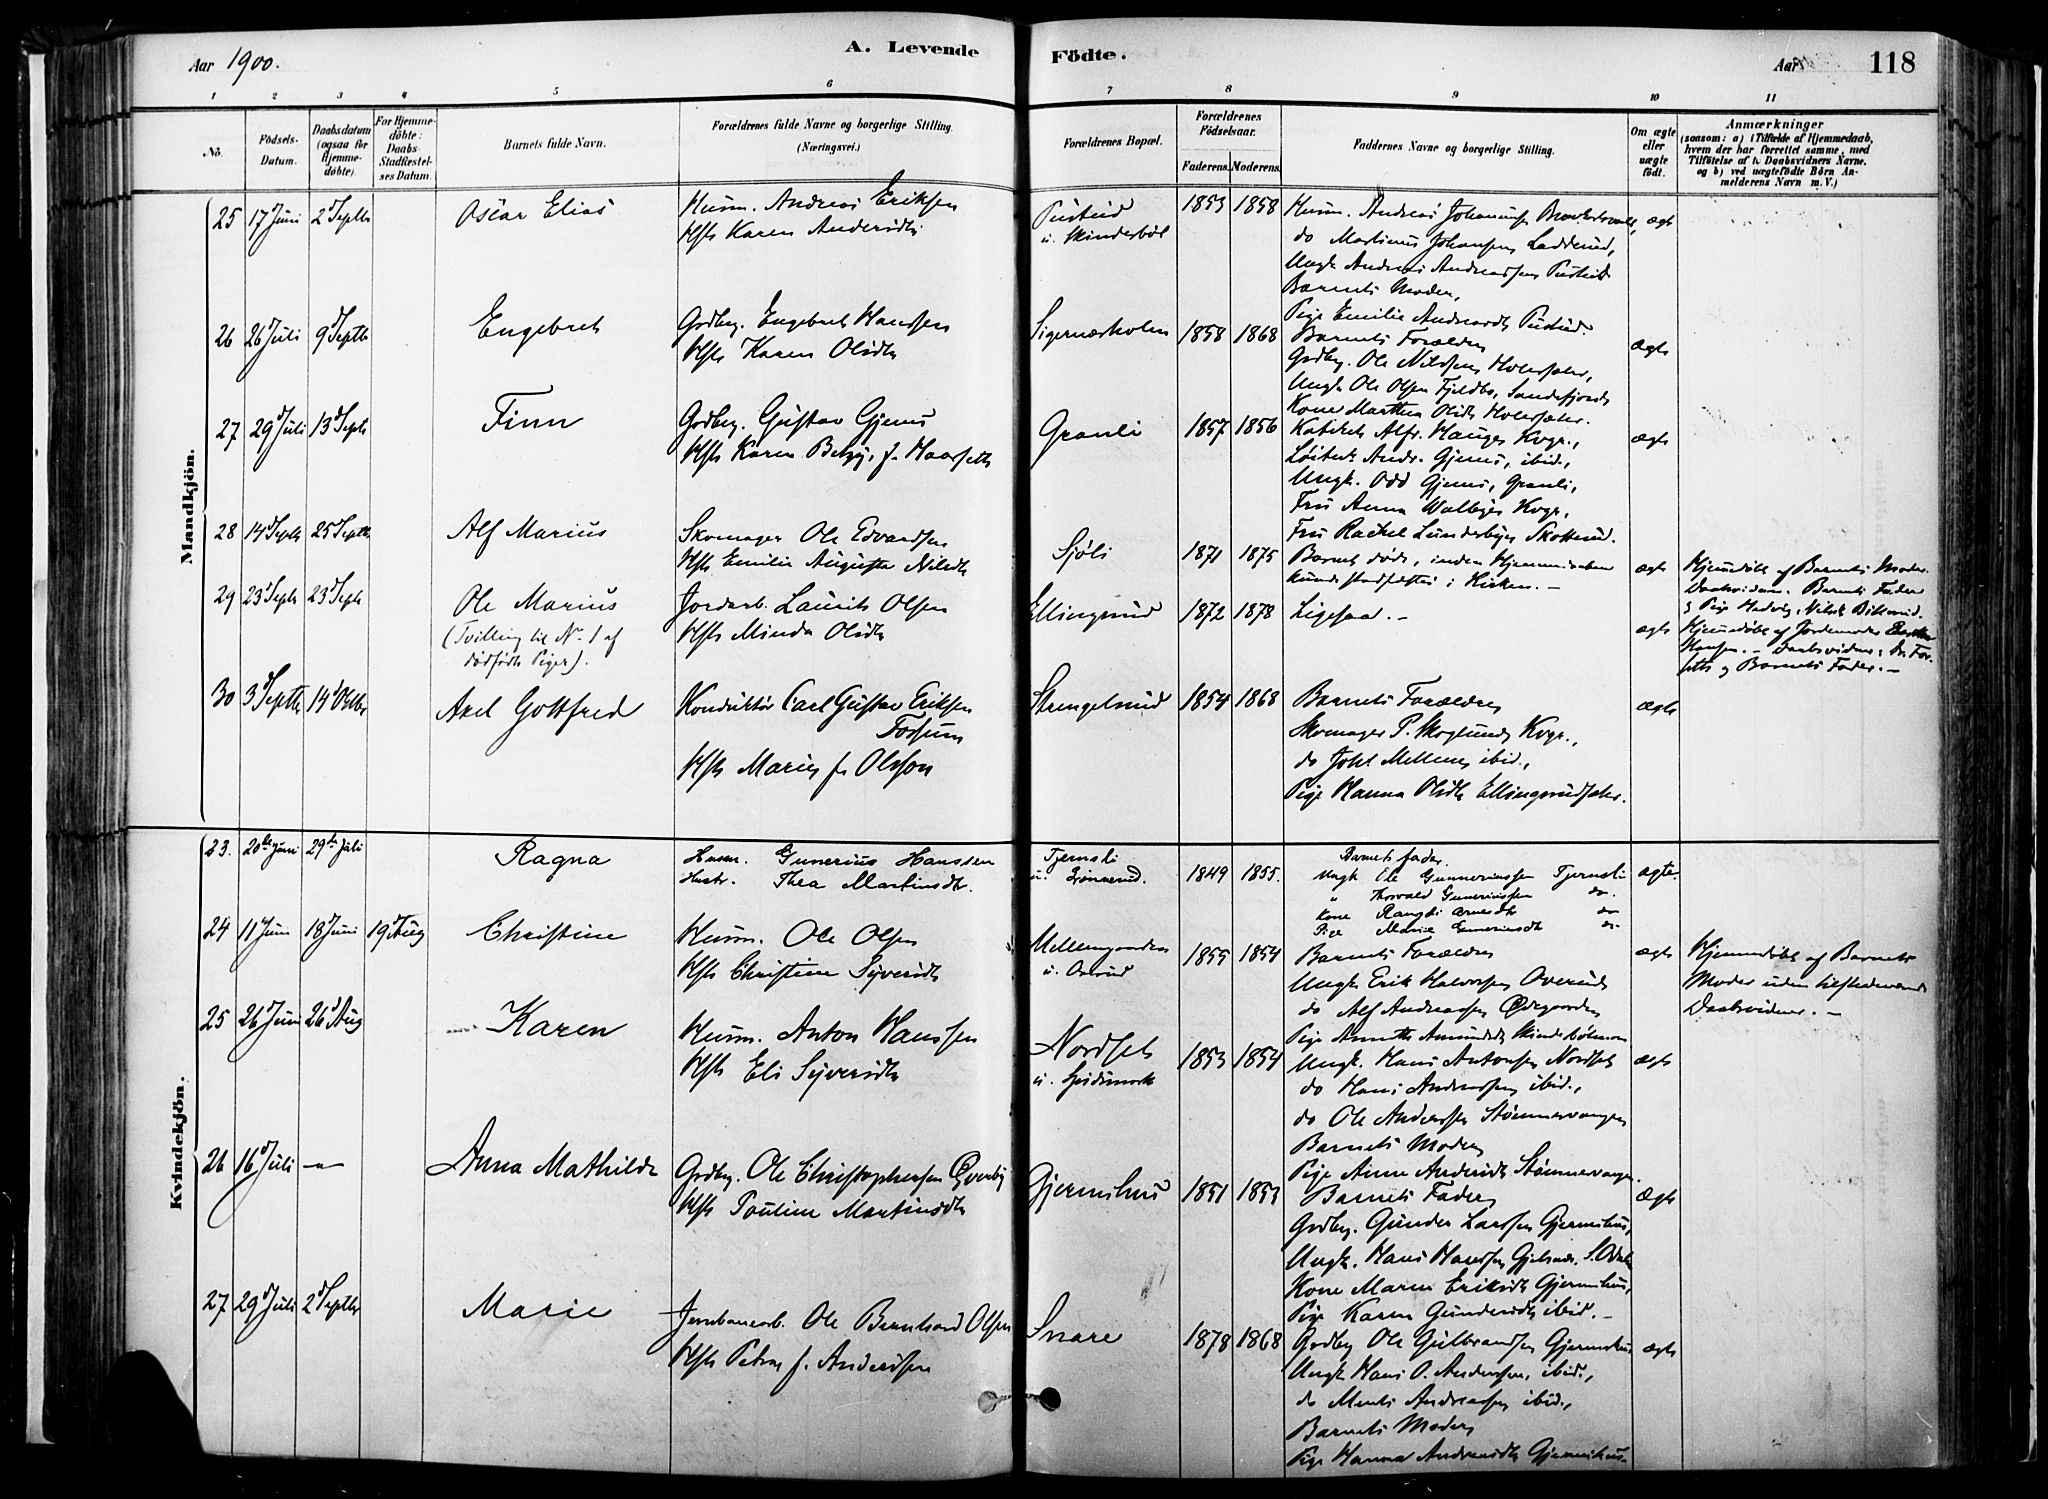 Aar 1900.
A. Levende
Födte.
Aar
118
1 2 3 4 5 6 7 8 9 10 11
No.
Födsels-Datum.
Daabsdatum (ogsaa for Hjemmedöbte).
For Hjemmedöbte: Daabs-Stadfæstelses Datum.
Barnets fulde Navn.
Forældrenes fulde Navne og borgerlige Stilling. (Næringsvei.)
Forældrenes Bopæl.
Forældrenes Födselsaar.
Faderens. Moderens.
Faddernes Navne og borgerlige Stilling.
Om ægte eller uægte födt.
Anmærkninger
(saasom: a) i Tilfælde af Hjemmedaab, hvem der har forrettet samme, med Tilföielse af to Daabsvidners Navne. og b) ved uægtefödte Börn Anmelderens Navn m. V.)
Mandkjön.
25 17d Juni 2d Septb Oscar Elias
Husm. Andreas Eriksen
Hst Karen Andersdtr
Pustud
u. Skinderböl
1853 1858
Husm. Andreas Johannesen
do Martinus Johansen Ladderud,
Ungk Andreas Andreassen Pustud
Barnets Moder,
Pige Emilie Andreasdtr Pustud.
ægte
26 26d Juli 9d Septb Engebret
Grdbrg. Engebret Hanssen
Hst Karen Olsdtr
Sigernesholm
1858 1868
Barnets Forældre
Grdbrg. Ole Nilssen Holersæter,
Ungk Ole Olsen Fjeldbo, Sandefjord
Kone Marthea Olsdtr Holersæter.
ægte
27 29d Juli 13d Septb Finn
Grdbrg. Gustav Gjems
Hst Karen Betzy, f. Haarseth
Granli
1857 1856
Katekei Alfr. Hauge Kvgr.,
Løitnt. Andr. Gjems, ibid.,
Ungk. Odd Gjems, Granli,
Fru Anna Walbye Kvgr,
Fru Rachel Lunderbye Skotterud.
ægte
28 14d Septb 25d Septb Alf Marius
Skomager Ole Edvardsen
Hst Emilie Augusta Nilsdtr
Sjöli
1871 1875
Barnet døde, inden Hjemmedaaben
kunde stadfæstes i Kirken. —
ægte
Hjemdöbt af Barnets Moder.
Daabsvidner: Barnets Fader
og Pige Hedvig Nilsdtr
29 23d Septb 23d Septb Ole Marius
(Tvilling til No 1 af
dødfødte Piger).
Jordarb. Laurits Olsen
Hst Minda Olsdtr
Ellingsrud
1872 1878
Ligesaa. —
ægte
Hjemdöbt af Jordemoder
Hansen. — Daabsvidner:
og Barnets Fader. —
30 3d Septb 14d Oktbr Axel Gottfred
Konduktör Carl Gustav Eriksen
Fossum
Hst Marie f. Olsson
Strengelsrud
1854 1868
Barnets Forældre
Skomager P. Skoglund Kvgr.,
do Johs Mellem ibid.,
Pige Hanna Olsdtr Ellingsrudsæter.
ægte
Kvindekjön.
23. 20de Juni 29de Juli Ragna
Husm. Gunerius Hanssen
Hustr. Thea Martinsdtr.
Tjernsli
u. Grönnerud.
1849 1855.
Barnets fader.
Ungk Ole Gunneriussen Tjernsli
" Thorvald Guneriussen do.
Kone Rangdi Arnesdtr do
Pige Marie Guneriusdtr do.
ægte.
24 11d Juni 18d Juni 19d Aug Christine
Husm. Ole Olsen
Hst Christine Syversdtr
Mellemgaarden
u. Overud
1855 1854
Barnets Forældre
Ungk Erik Halvorsen Overud
do Alf Andreassen Ødegaarden
Pige Annette Amundsdtr Skinderbölmoen
ægte
Hjemmdöbt af Barnets
Moder uden tilstedeværende
Daabsvidner. —
25 26d Juni 26d Aug Karen
Husm. Anton Hanssen
Hst Eli Syversdtr
Nordset
u. Spidsmork
1853 1854
Ungk. Hans Antonsen Nordset
do Hans Andreassen ibid.,
do Ole Andersen Stömnervangen
Barnets Moder
Pige Anne Andersdtr Stömnervangen.
ægte
26 16d Juli — " — Anna Mathilde
Grdbrg. Ole Christophersen Qværby
Hst Pauline Martinsdtr
Gjermshus
1851 1853
Barnets Fader
Grdbrg. Gunder Larssen Gjermshus,
Ungk. Hans Hanssen S. Odalen
Kone Maren Eriksdtr Gjermshus,
Pige Karen Gundersdtr ibid. —
ægte
27 29d Juli 2d Septbr Marie
Jernbanearb. Ole Bernhard Olsen
Hst Petra f. Anderssen
Snare
1878 1868
Grdbrg Ole Gulbrandsen Gjermshus
Ungk Hans O. Anderssen, ibid.,
do Andreassen ibid.,
Barnets Moder
Pige Hanna Andreasdtr Gjermshus.
ægte